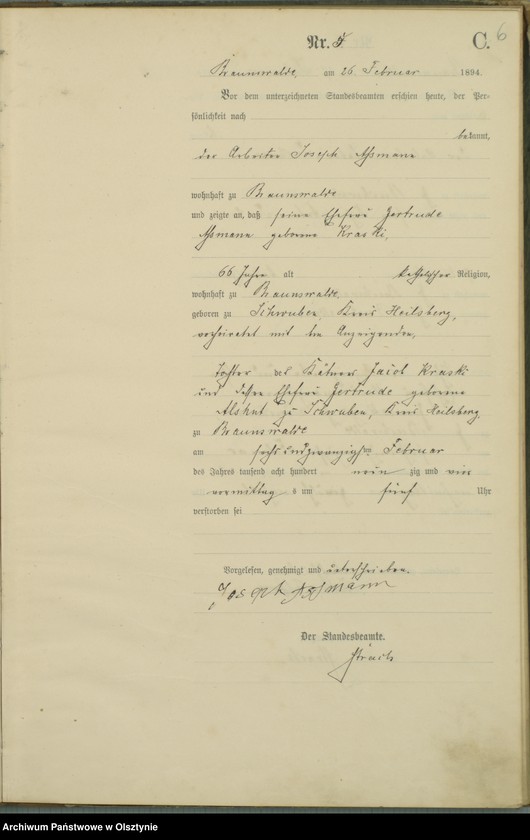 6
Nr. 5. C.
Braunswalde, am 26 Februar 1894.
Vor dem unterzeichneten Standesbeamten erschien heute, der Per-
sönlichkeit nach
bekannt,
der Arbeiter Joseph Aßmann
wohnhaft zu Braunswalde
und zeigte an, daß seine Ehefrau Gertrude
Aßmann geborene Kraski,
66 Jahre alt katholischer Religion,
wohnhaft zu Braunswalde,
geboren zu Schwuben, Kreis Heilsberg,
verheiratet mit dem Anzeigenden,
Tochter des Kätners Jacob Kraski
und dessen Ehefrau Gertrude geborene
zu Schwuben, Kreis Heilsberg,
zu Braunswalde
am sechsundzwanzigsten Februar
des Jahres tausend acht hundert neun zig und vier
vormittag s um fünf Uhr
verstorben sei
Vorgelesen, genehmigt und unterschrieben.
Joseph Aßmann
Der Standesbeamte.
Archiwum Państwowe w Olsztynie